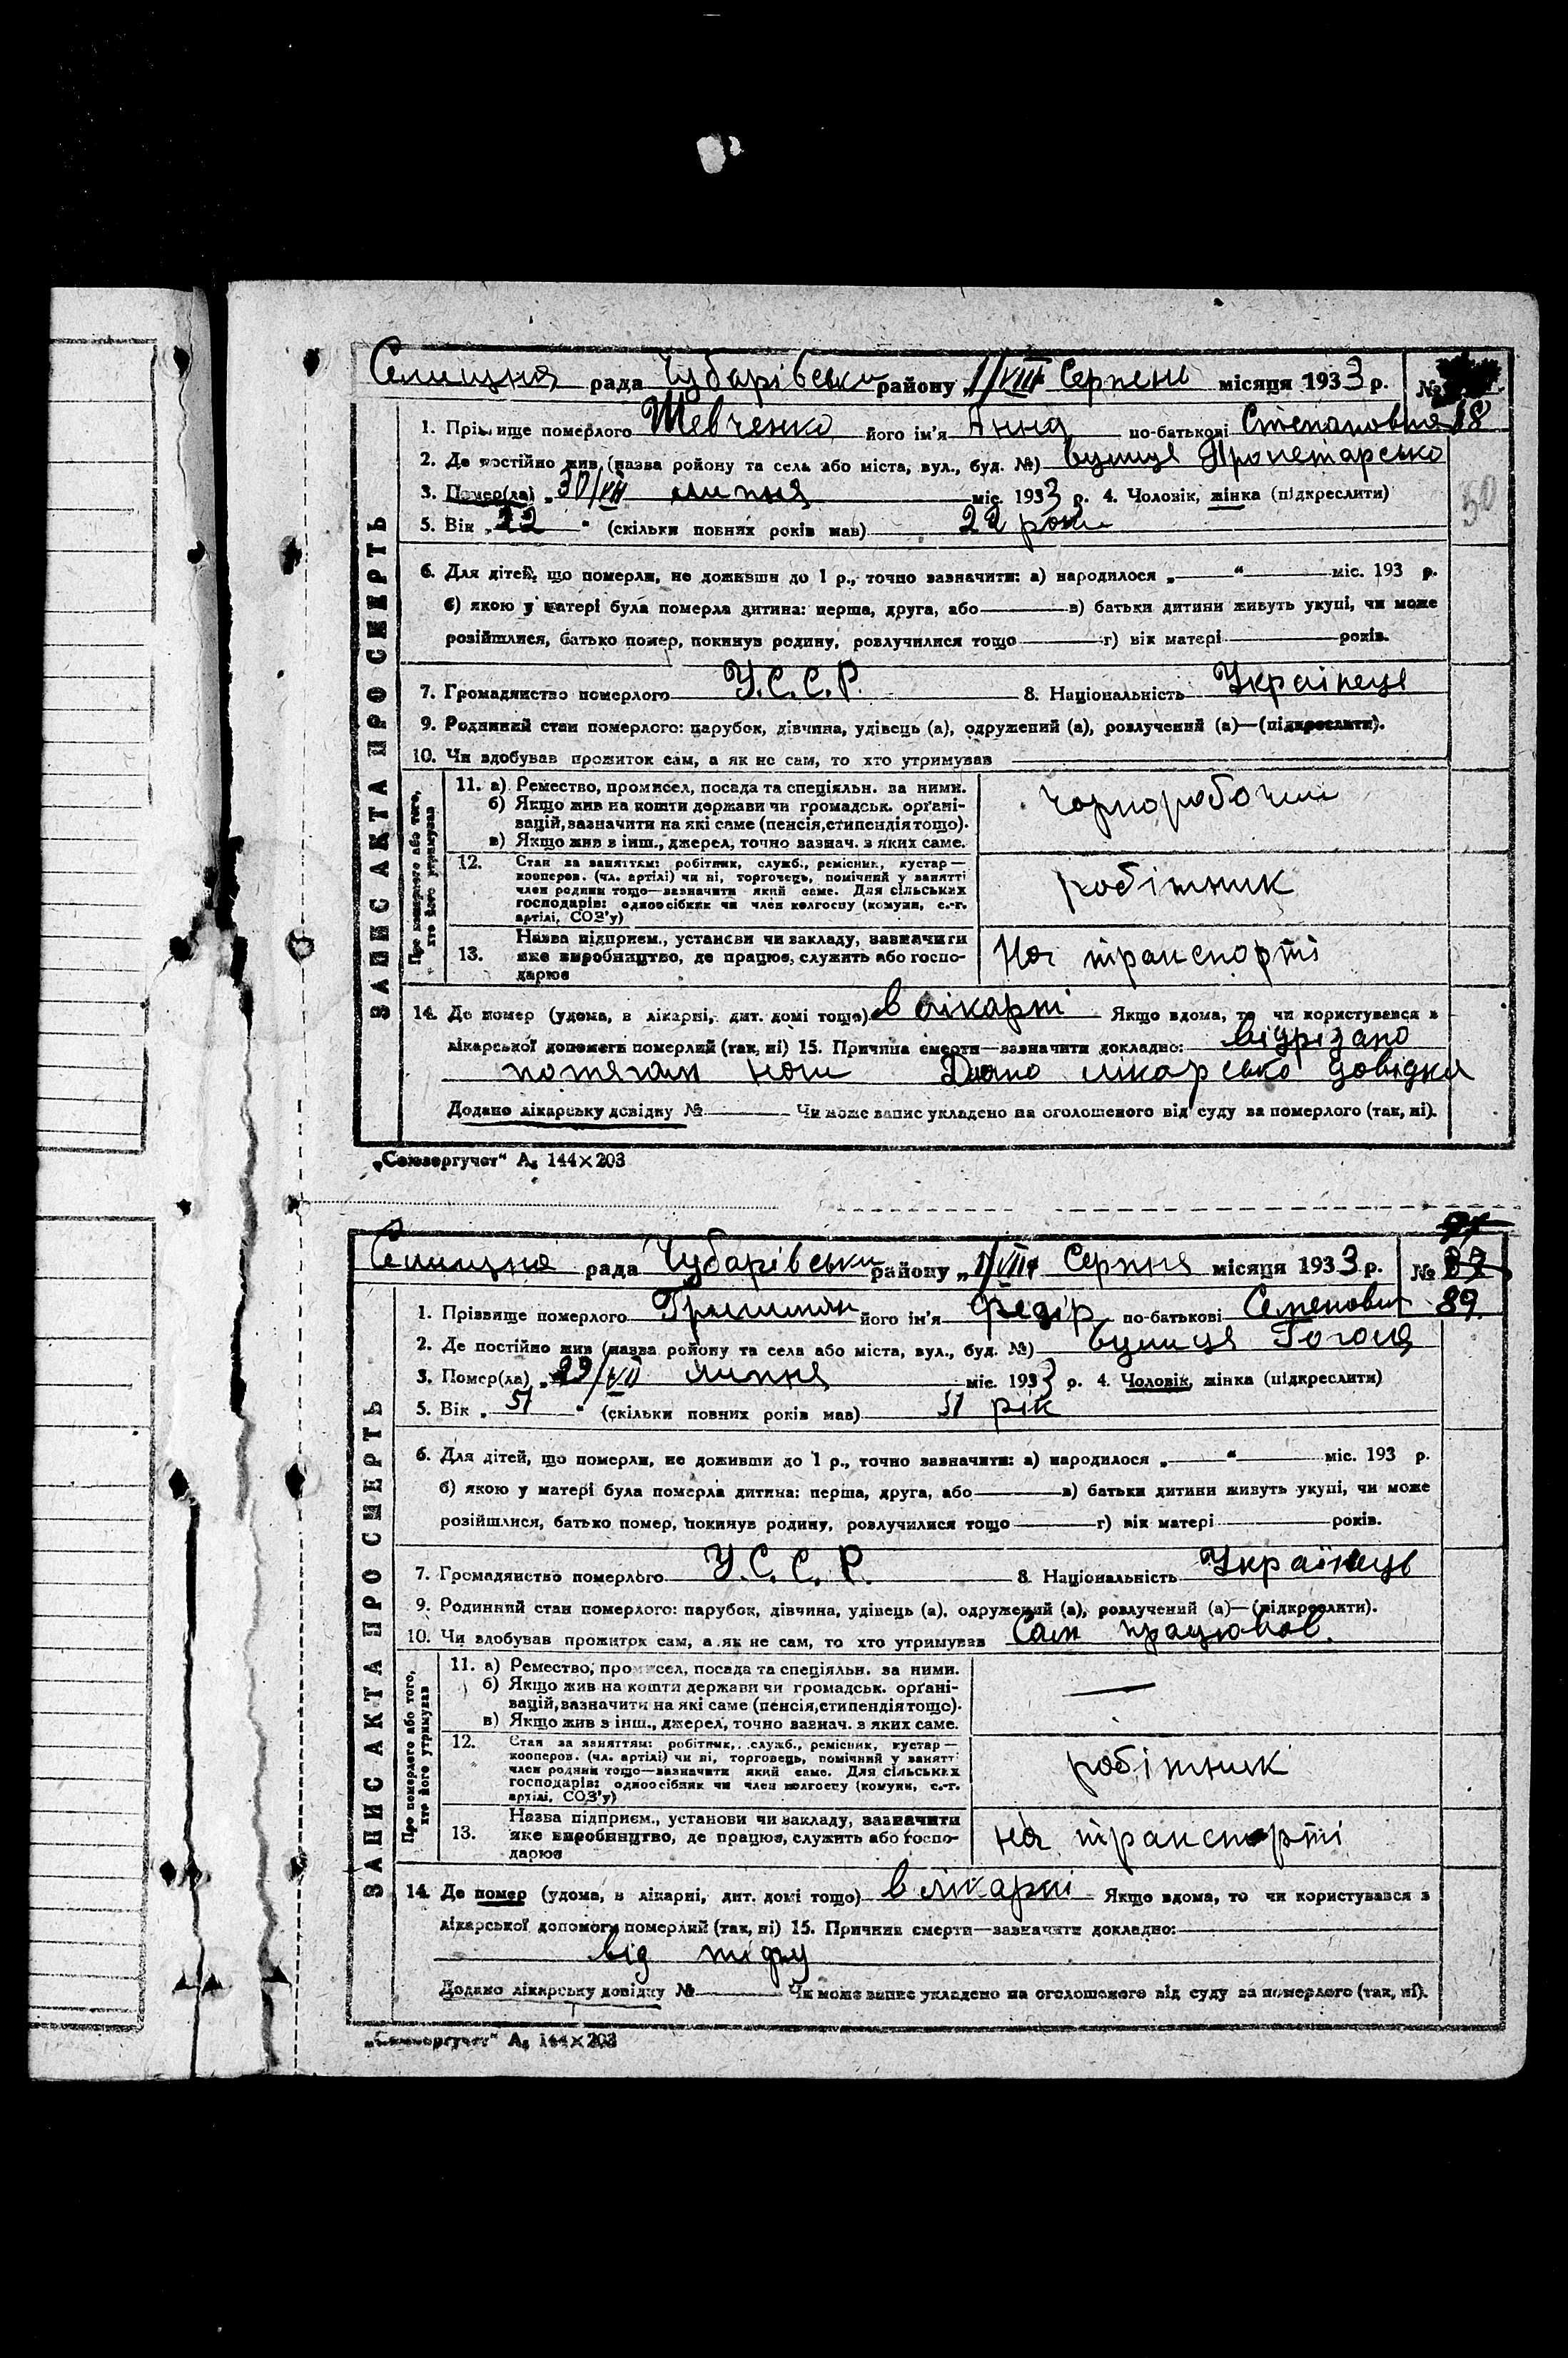 Селищна рада Чубарівськи району „1/VIII Серпень місяця 1933 р. №
1. Прізвище померлого Шевченко його ім'я Анна по-батькові Степановна 88
2. Де постійно жив (назва ройону та села або міста, вул., буд. №) вулиця Пролетарсько
50
3. Помер(ла) „30/VII липня міс. 1933 р. 4. Чоловік, жінка (підкреслити)
5. Вік „22“ (скільки повних років мав) 22 роки
6. Для дітей, що померли, не доживши до 1 р., точно зазначити: а) народилося „ “ міс. 193 р.
б) якою у матері була померла дитина: перша, друга, або в) батьки дитини живуть укупі, чи може
розійшлися, батько помер, покинув родину, розлучилися тощо г) вік матері років.
7. Громадянство померлого У.С.С.Р. 8. Національність Українець
9. Родинний стан померлого: парубок, дівчина, удівець (а), одружений (а), розлучений (а)—(підкреслити).
10. Чи здобував прожиток сам, а як не сам, то хто утримував
ЗАПИС АКТА ПРО СМЕРТЬ
Про померлого або того, хто його утримував
11. а) Ремество, промисел, посада та спеціяльн. за ними.
б) Якщо жив на кошти держави чи громадськ. органі-
зацій, зазначити на які саме (пенсія, стипендія тощо).
в) Якщо жив в інш., джерел, точно зазнач. з яких саме.
чорноробочий
12. Стан за заняттям: робітник, служб., ремісник, кустар—
кооперов. (чл. артілі) чи ні, торговець, помічний у занятті
член родини тощо—зазначити який саме. Для сільських
господарів: одноосібник чи член колгоспу (комуни, с.-г.
артілі, СОЗ'у)
робітник
13. Назва підприєм., установи чи закладу, зазначити
яке виробництво, де працює, служить або госпо-
дарює
На транспорті
14. Де помер (удома, в лікарні, дит. домі тощо) в лікарні Якщо вдома, то чи користувався з
лікарської допомоги померлий (так, ні) 15. Причина смерти—зазначити докладно: відрізано
потягом ноги Дано лікарсько довідка
Додано лікарську довідку № Чи може запис укладено на оголошеного від суду за померлого (так, ні).
„Союзоргучет“ А₅ 144×203
Селищна рада Чубарівськи району „1/VIII Серпня місяця 1933 р. №
1. Прізвище померлого його ім'я Федір по-батькові Семенович 89
2. Де постійно жив (назва ройону та села або міста, вул., буд. №) вулиця Гоголя
3. Помер(ла) „29/VII липня міс. 1933 р. 4. Чоловік, жінка (підкреслити)
5. Вік „51“ (скільки повних років мав) 51 рік
6. Для дітей, що померли, не доживши до 1 р., точно зазначити: а) народилося „ “ міс. 193 р.
б) якою у матері була померла дитина: перша, друга, або в) батьки дитини живуть укупі, чи може
розійшлися, батько помер, покинув родину, розлучилися тощо г) вік матері років.
7. Громадянство померлого У.С.С.Р. 8. Національність Українець
9. Родинний стан померлого: парубок, дівчина, удівець (а), одружений (а), розлучений (а)—(підкреслити).
10. Чи здобував прожиток сам, а як не сам, то хто утримував Сам працював.
ЗАПИС АКТА ПРО СМЕРТЬ
Про померлого або того, хто його утримував
11. а) Ремество, промисел, посада та спеціяльн. за ними.
б) Якщо жив на кошти держави чи громадськ. органі-
зацій, зазначити на які саме (пенсія, стипендія тощо).
в) Якщо жив з інш., джерел, точно зазнач. з яких саме.
12. Стан за заняттям: робітник, служб., ремісник, кустар—
кооперов. (чл. артілі) чи ні, торговець, помічний у занятті
член родини тощо—зазначити який саме. Для сільських
господарів: одноосібник чи член колгоспу (комуни, с.-г.
артілі, СОЗ'у)
робітник
13. Назва підприєм., установи чи закладу, зазначити
яке виробництво, де працює, служить або госпо-
дарює
на транспорті
14. Де помер (удома, в лікарні, дит. домі тощо) в лікарні Якщо вдома, то чи користувався з
лікарської допомоги померлий (так, ні) 15. Причина смерти—зазначити докладно:
від тифу
Додано лікарську довідку № Чи може запис укладено на оголошеного від суду за померлого (так, ні).
„Союзоргучет“ А₅ 144×203